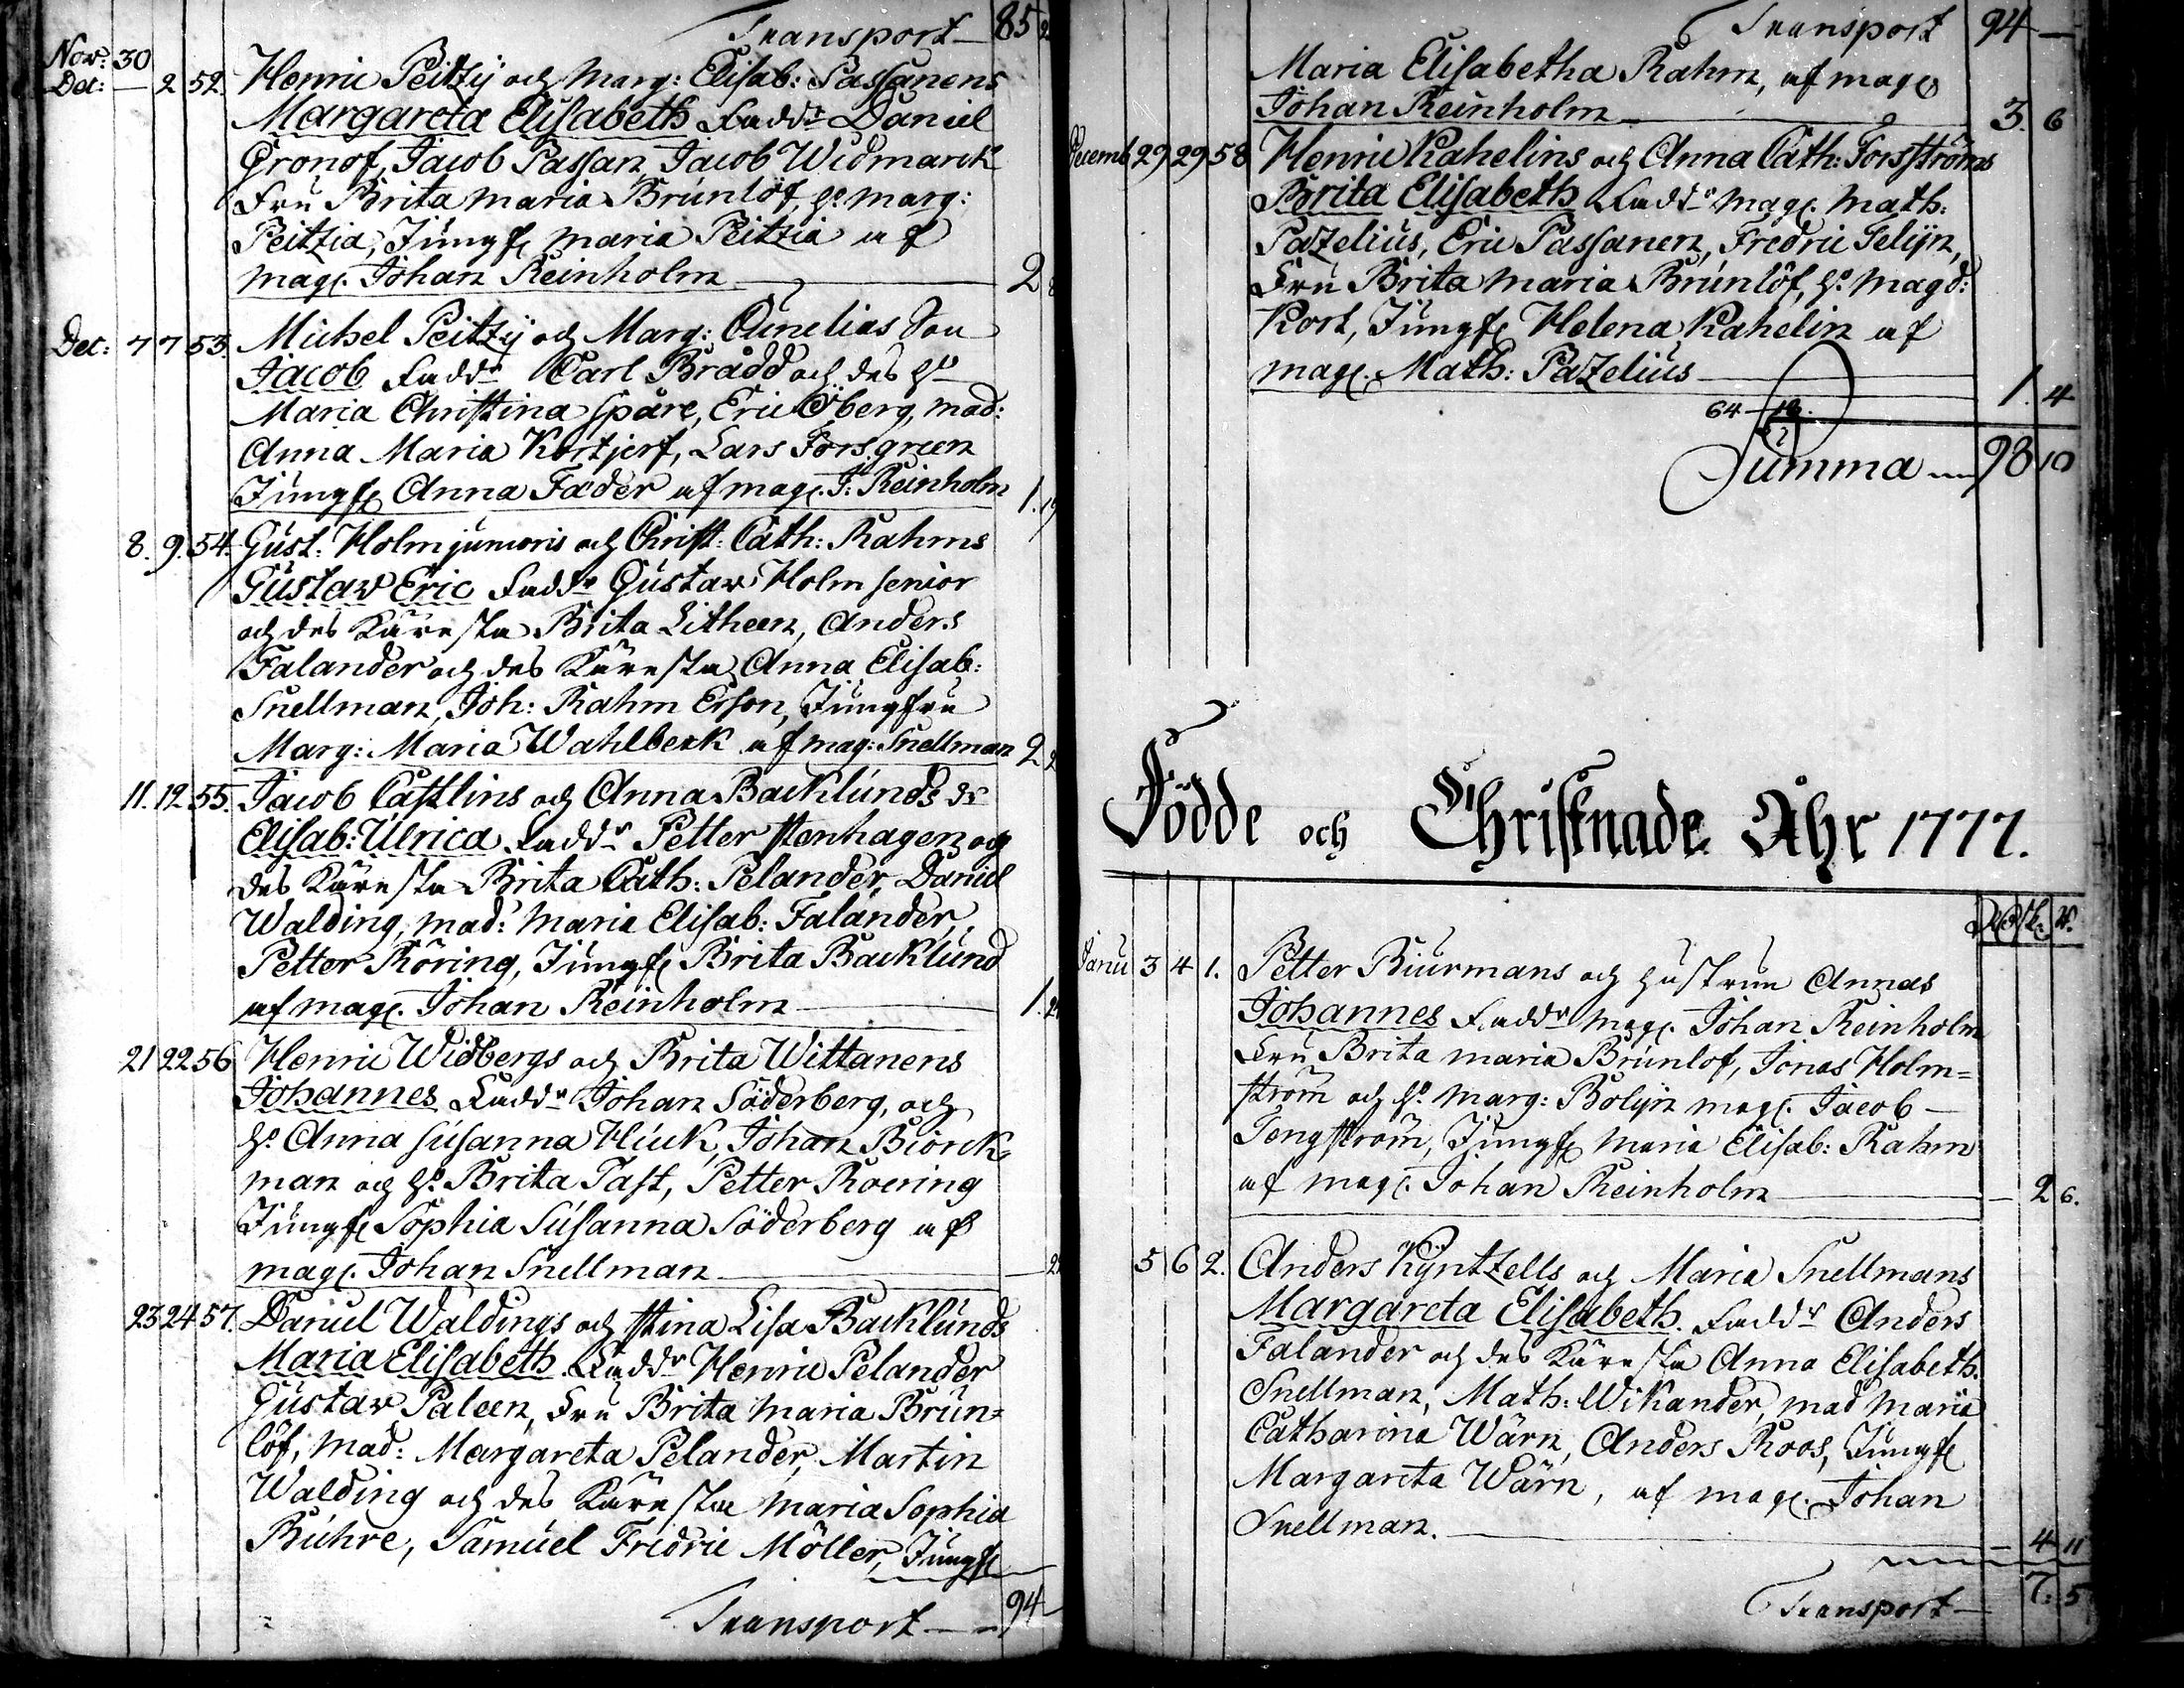 Transport 85
Nov: 30
Dec: — 2 52. Henric Peitzij och Marg: Elisab: Passanens
Margareta Elisabeth Fadd:r Daniel
Gronof, Jacob Passan, Jacob Widmarck
Fru Brita Maria Brunlöf, h. Marg:
Peitzia, Jungf. Maria Peitzia af
Mag. Johan Reinholm — 2
Dec: 7 7 53. Michel Peitzij och Marg: Cunelias Son
Jacob Fadd:r Carl Brådd och des h.
Maria Christina Spåre, Eric Öberg, Mad:
Anna Maria Kortjerf, Lars Forsgreen
Jungf. Anna Fæder af Mag. J: Reinholm 1. 19
8. 9. 54. Gust: Holm junioris och Christ: Cath: Rahms
Gustav Eric Fadd:r Gustav Holm senior
och des Käresta Brita Litheen, Anders
Falander och des Käresta Anna Elisab:
Snellman, Joh: Rahm Erson, Jungfru
Marg: Maria Wahlbeck af Mag: Snellman 2
11. 12 55. Jacob Castlins och Anna Backlunds dr
Elisab: Ulrica Fadd:r Petter Stenhagen och
des Käresta Brita Cath: Pelander, Daniel
Walding, Mad: Maria Elisab: Falander,
Petter Röring, Jungf. Brita Backlund
af Mag. Johan Reinholm — 1.
21 22 56 Henric Widbergs och Brita Wittanens
Johannes Fadd:r Johan Söderberg, och
h. Anna Susanna Huck, Johan Biörck-
man och h. Brita Tast, Petter Roering
Jungf. Sophia Susanna Söderberg af
Mag. Johan Snellman —
23 24 57. Daniel Waldings och Stina Lisa Backlunds
Maria Elisabeth Fadd:r Henric Pelander
Gustav Paleen, Fru Brita Maria Brun=
löf, Mad: Margareta Pelander, Martin
Walding och des Käresta Maria Sophia
Buhre, Samuel Fredric Möller, Jungf.
Transport — 94
Transport 94 —
Maria Elisabetha Rahm, af Mag.
Johan Reinholm — 3. 6
Decemb 29 29 58 Henric Kahelins och Anna Cath: Forsströms
Brita Elisabeth Fadd:r Mag. Math:
Pazelius, Eric Passanen, Fredric Selijn,
Fru Brita Maria Brunlöf, h. Magd:
Kort, Jungf. Helena Kahelin af
Mag. Math: Pazelius — 1. 4
64 —
Summa — 98 10
Födde och Christnade Åhr 1777.
Janu 3 4 1. Petter Biurmans och hustrun Annas
Johannes Fadd:r Mag. Johan Reinholm
Fru Brita Maria Brunlöf, Jonas Holm=
ström och h. Marg: Bolijn Mag. Jacob
Tengström, Jungf. Maria Elisab: Rahm
af Mag. Johan Reinholm — 2 6.
5 6 2. Anders Kyntzells och Maria Snellmans
Margareta Elisabeth. Fadd:r Anders
Falander och des Käresta Anna Elisabeth.
Snellman, Math: Wikander, Mad Maria
Catharina Wärn, Anders Roos, Jungf.
Margareta Wärn, af Mag. Johan
Snellman. — 4 11
Transport — 7: 5